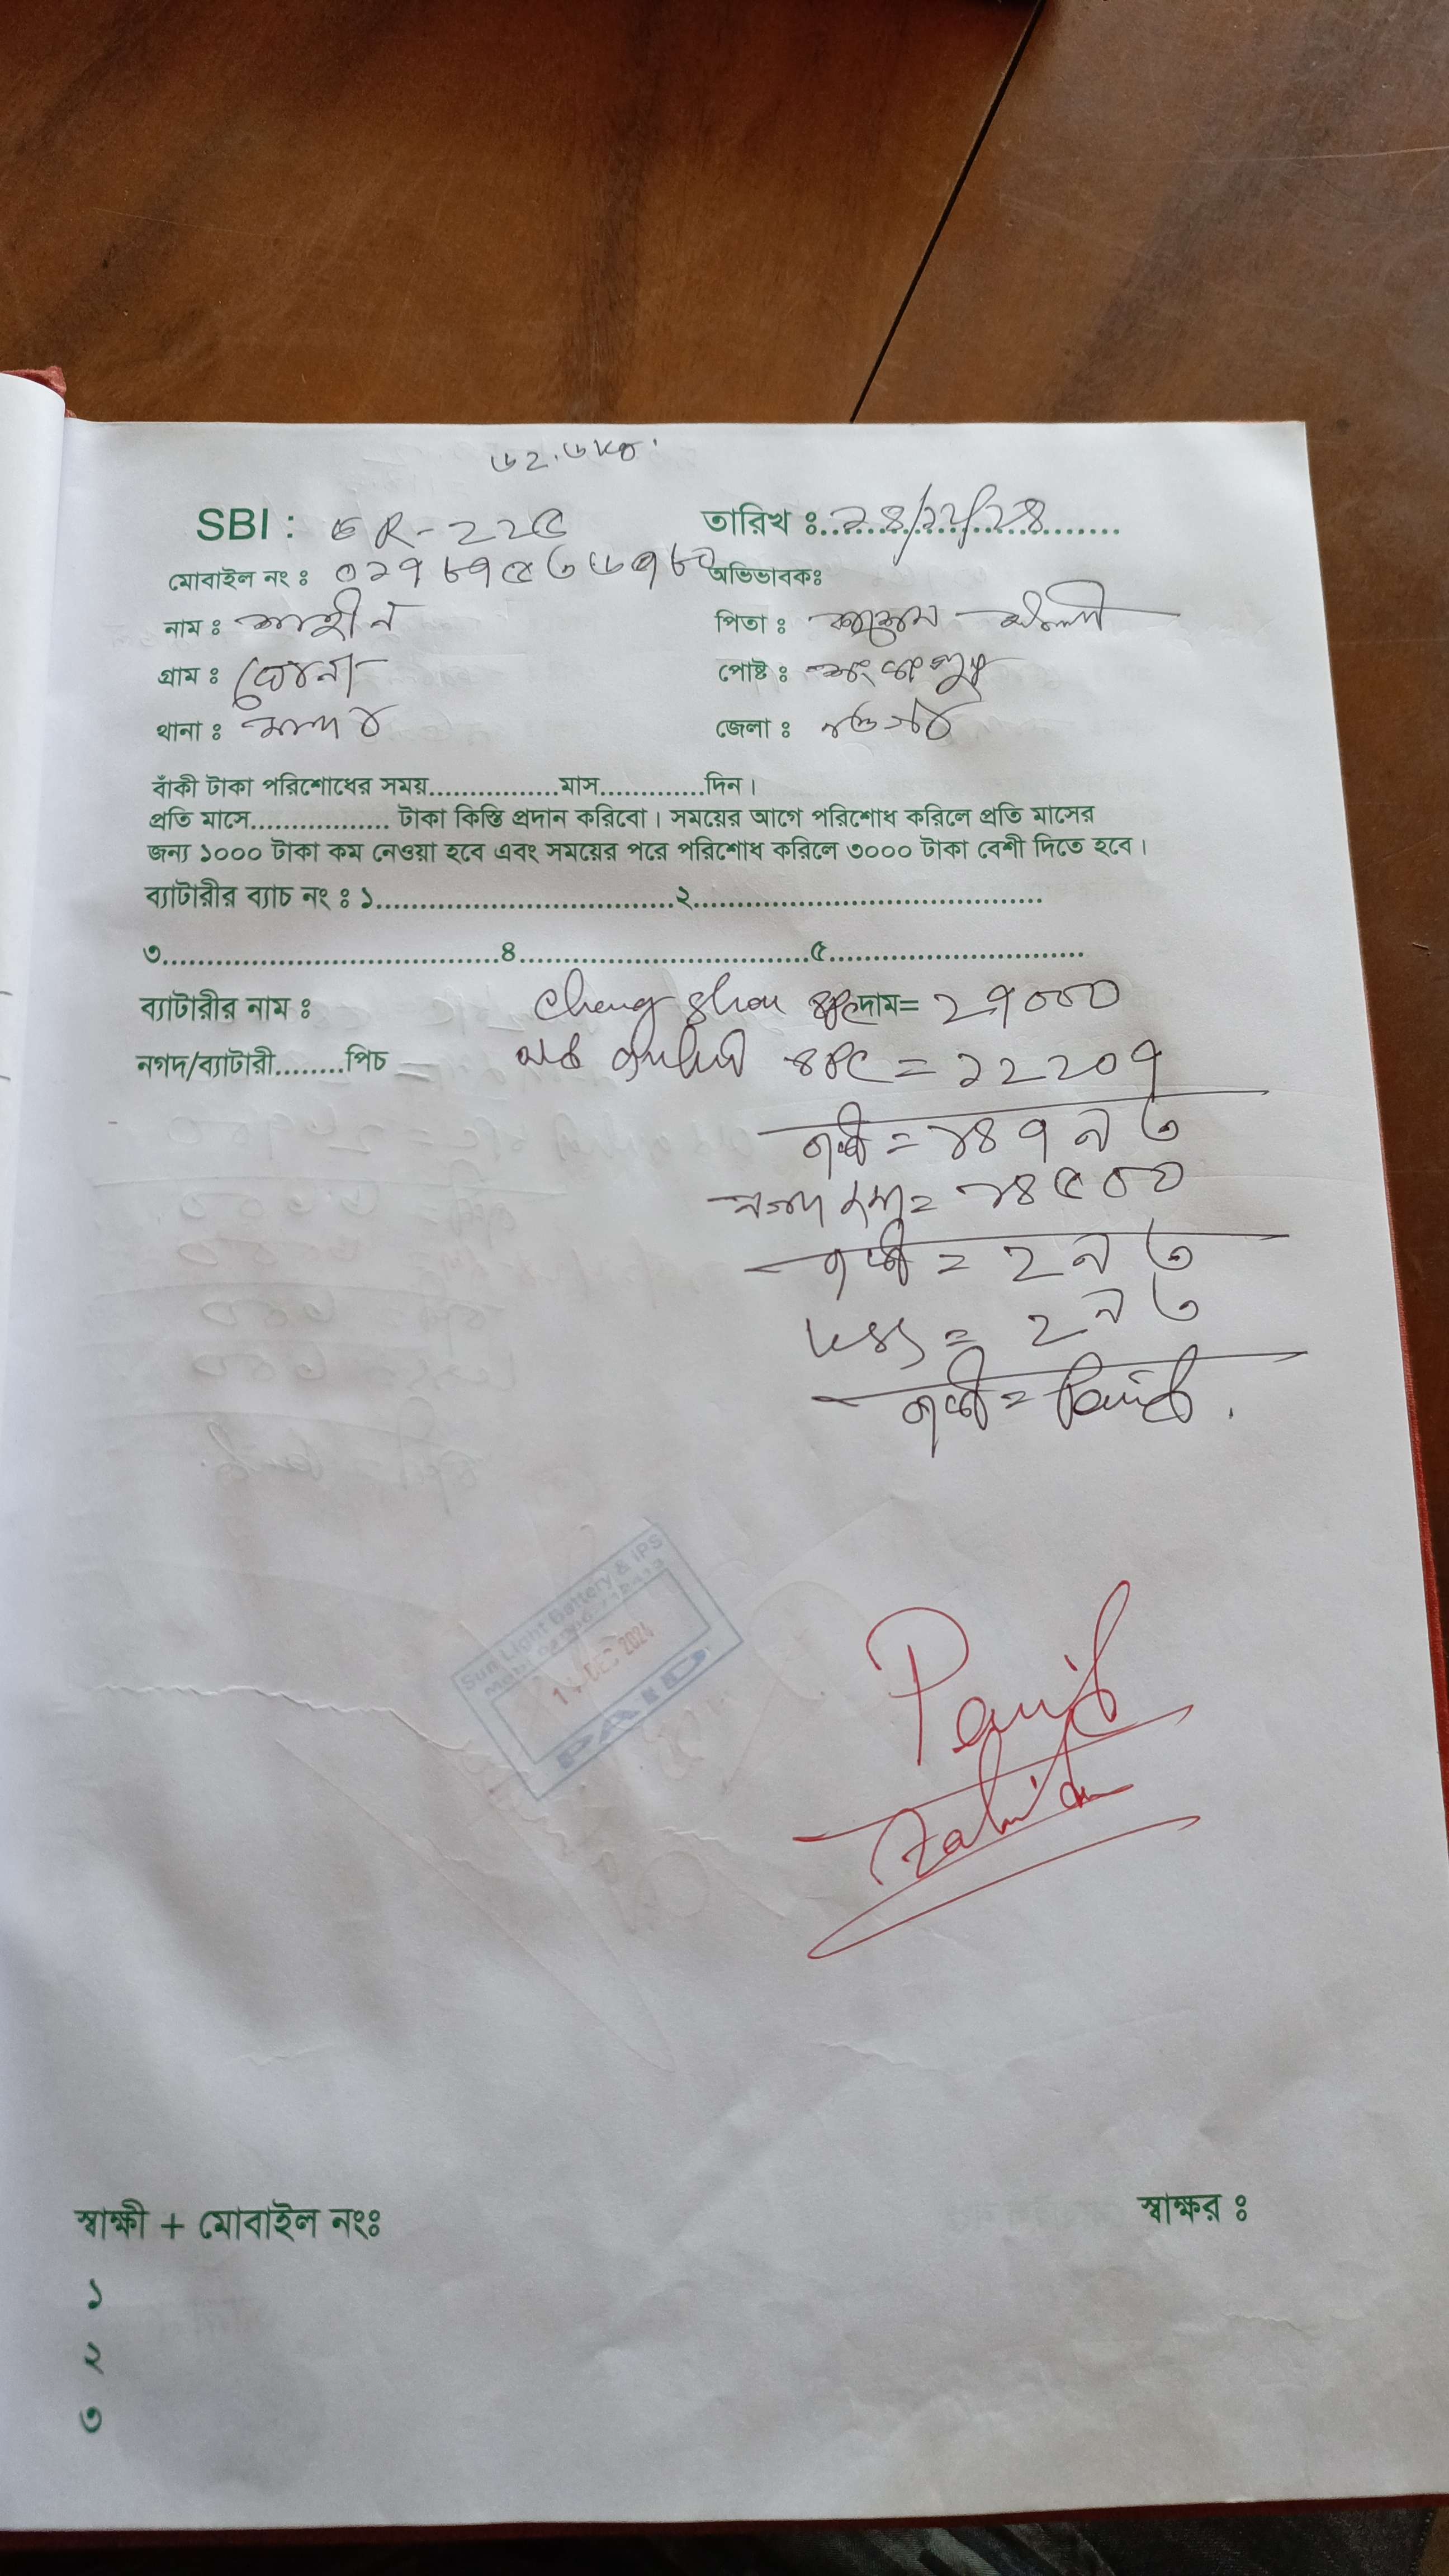 ৬২.৬ kg.
SBI : ER-২২৫
তারিখ ঃ ১৪/১২/২৪
মোবাইল নং ঃ ০১৭৮৭৫৬৬৭৮০ অভিভাবকঃ
নাম ঃ শাহীন পিতা ঃ
গ্রাম ঃ পোষ্ট ঃ
থানা ঃ সদর জেলা ঃ নওগাঁ
বাঁকী টাকা পরিশোধের সময়.................মাস..............দিন।
প্রতি মাসে.................. টাকা কিস্তি প্রদান করিবো। সময়ের আগে পরিশোধ করিলে প্রতি মাসের
জন্য ১০০০ টাকা কম নেওয়া হবে এবং সময়ের পরে পরিশোধ করিলে ৩০০০ টাকা বেশী দিতে হবে।
ব্যাটারীর ব্যাচ নং ঃ ১.......................................২..............................................
৩............................................৪.........................................৫..................................
ব্যাটারীর নাম ঃ Cheng Shou ৪PC দাম= ২৭০০০
নগদ/ব্যাটারী........পিচ ৪PC = ১২২০৭
বাকী = ১৪৭৯৩
নগদ জমা = ১৪৫০০
বাকী = ২৯৩
Less = ২৯৩
বাকী = Paid.
Sun Light Battery & IPS
DEC 2024
PAID
Paid
স্বাক্ষী + মোবাইল নংঃ স্বাক্ষর ঃ
১
২
৩